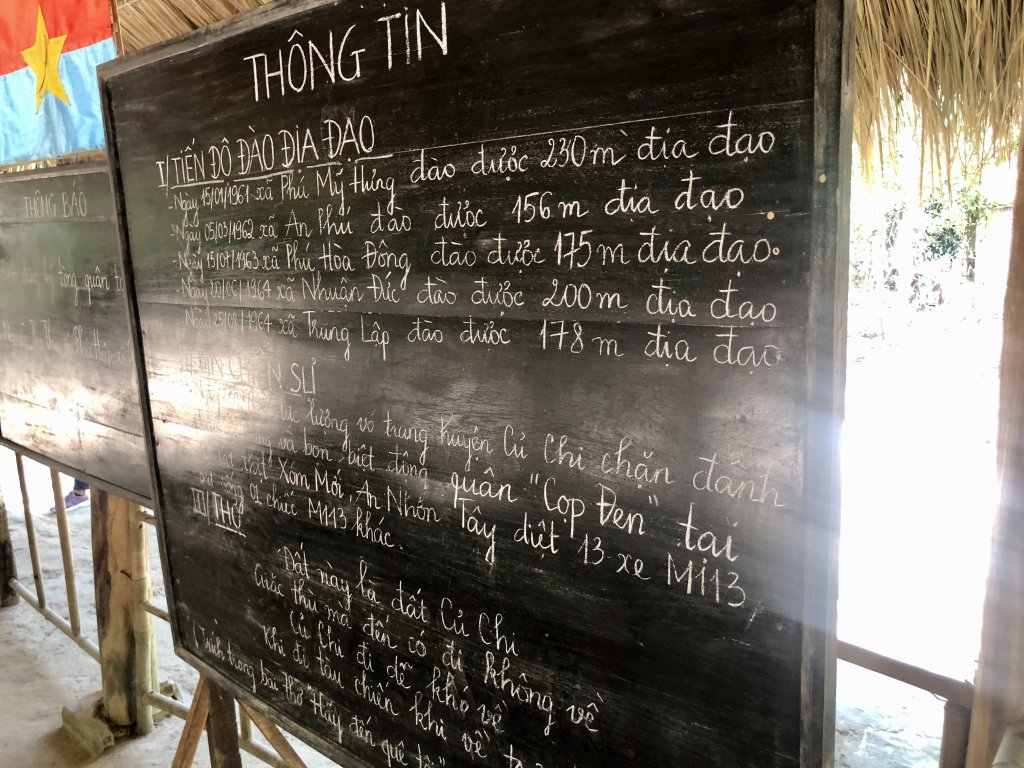 THÔNG BÁO
quân
THÔNG TIN
I/ TIẾN ĐỘ ĐÀO ĐỊA ĐẠO
- Ngày 15/01/1961 xã Phú Mỹ Hưng đào được 230m địa đạo
- Ngày 05/03/1962 xã An Phú đào được 156m địa đạo
- Ngày 15/07/1963 xã Phú Hòa Đông đào được 175m địa đạo.
- Ngày 1964 xã Nhuận Đức đào được 200m địa đạo
- Ngày 1964 xã Trung Lập đào được 178m địa đạo
SỬ
lực lượng võ trang huyện Củ Chi chặn đánh
và bọn biệt động quân "Cọp Đen" tại
Xóm Mới, An Nhơn Tây diệt 13 xe M113,
chiếc M113 khác.
III/ THƠ
Đất này là đất Củ Chi
Giặc thù mà đến có đi không về
Củ Chi đi dễ khó về
Khi đi tàu chiến khi về
trong bài thơ "Hãy đến quê